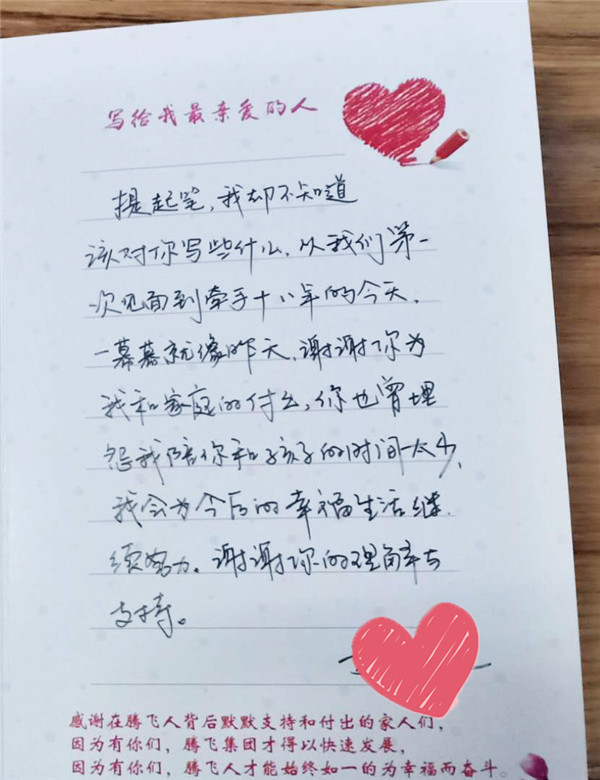 写给我最亲爱的人
提起笔,我却不知道
该对你写些什么,从我们第一
次见面到牵手十八年的今天,
一幕幕就像昨天,谢谢你为
我和家庭的付出,你也曾埋
怨我陪你和孩子的时间太少,
我会为今后的幸福生活继
续努力。谢谢你的理解与
支持。
感谢在腾飞人背后默默支持和付出的家人们,
因为有你们,腾飞集团才得以快速发展,
因为有你们,腾飞人才能始终如一的为幸福而奋斗。